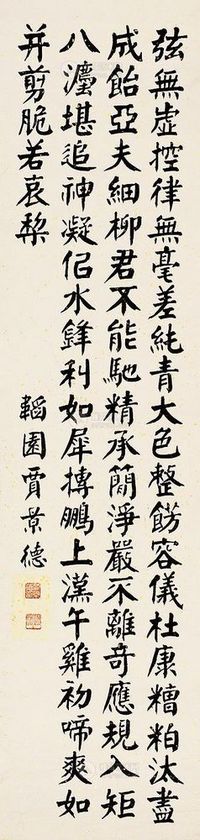 弦無虛控律無毫差純青大色整飭容儀杜康糟粕汰盡
成飴亞夫細柳君不能馳精承簡淨嚴不離奇應規入矩
八灋堪追神凝佀水鋒利如犀摶鵬上漢午雞初啼爽如
并剪脆若哀棃
韜園賈景德